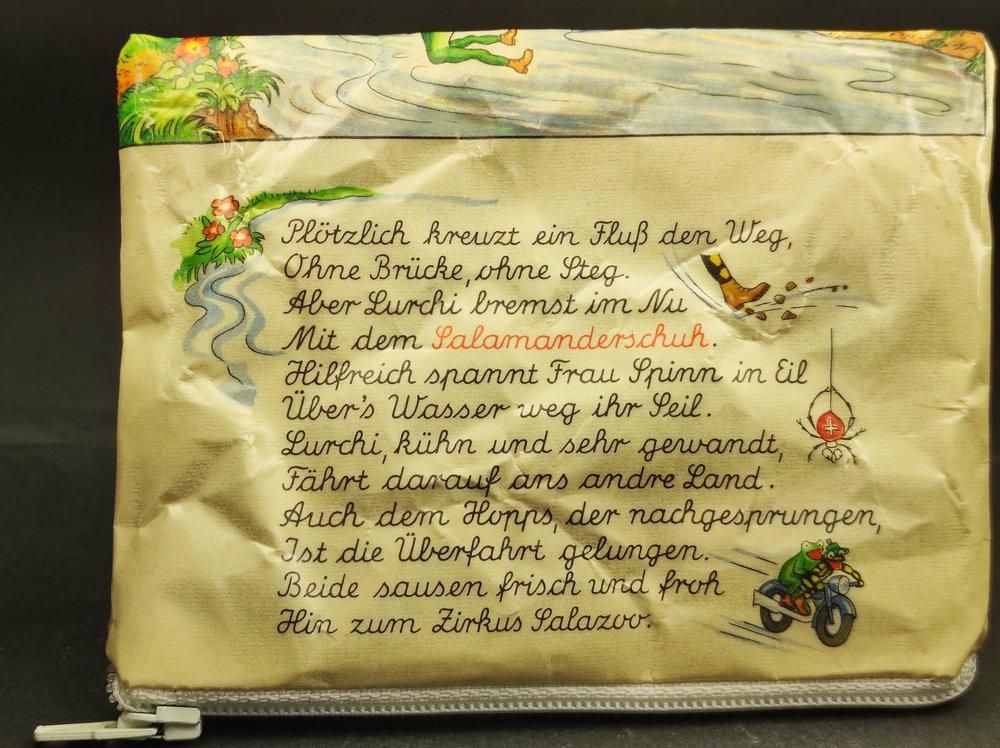 Plötzlich kreuzt ein Fluß den Weg,
Ohne Brücke, ohne Steg.
Aber Lurchi bremst im Nu
Mit dem Salamanderschuh.
Hilfreich spannt Frau Spinn in Eil
Über's Wasser weg ihr Seil.
Lurchi, kühn und sehr gewandt,
Fährt darauf ans andre Land.
Auch dem Hopps, der nachgesprungen,
Ist die Überfahrt gelungen.
Beide sausen frisch und froh
Hin zum Zirkus Salazoo.